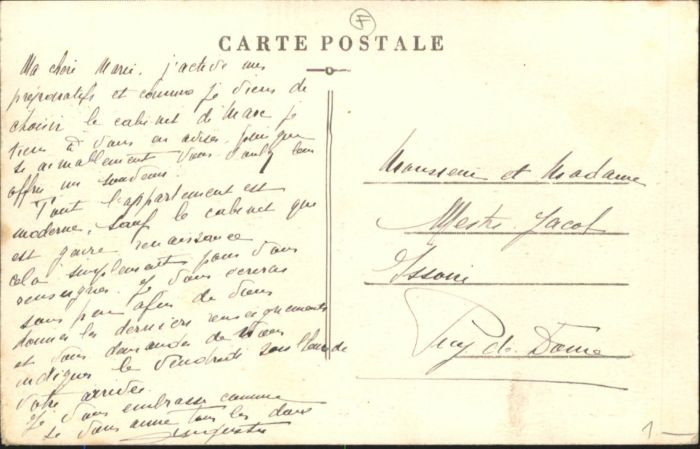 CARTE POSTALE
Ma chère Marie, j'active mes
préparatifs et comme je viens de
choisir le cabinet de Marc je
tiens à vous en aviser, pour que
si actuellement vous voulez
offrir un
Tout l'appartement est
moderne, sauf le cabinet que
est genre renaissance
cela simplement pour vous
renseigner. Je vous écrirai
sous peu afin de vous
donner les derniers renseignements
et vous demander de nous
indiquer le l'heure de
votre arrivée.
Je vous embrasse comme
je vous aime tous les deux
Monsieur et Madame
Mestre Jacob
Issoire
Puy de Dome
F
1-